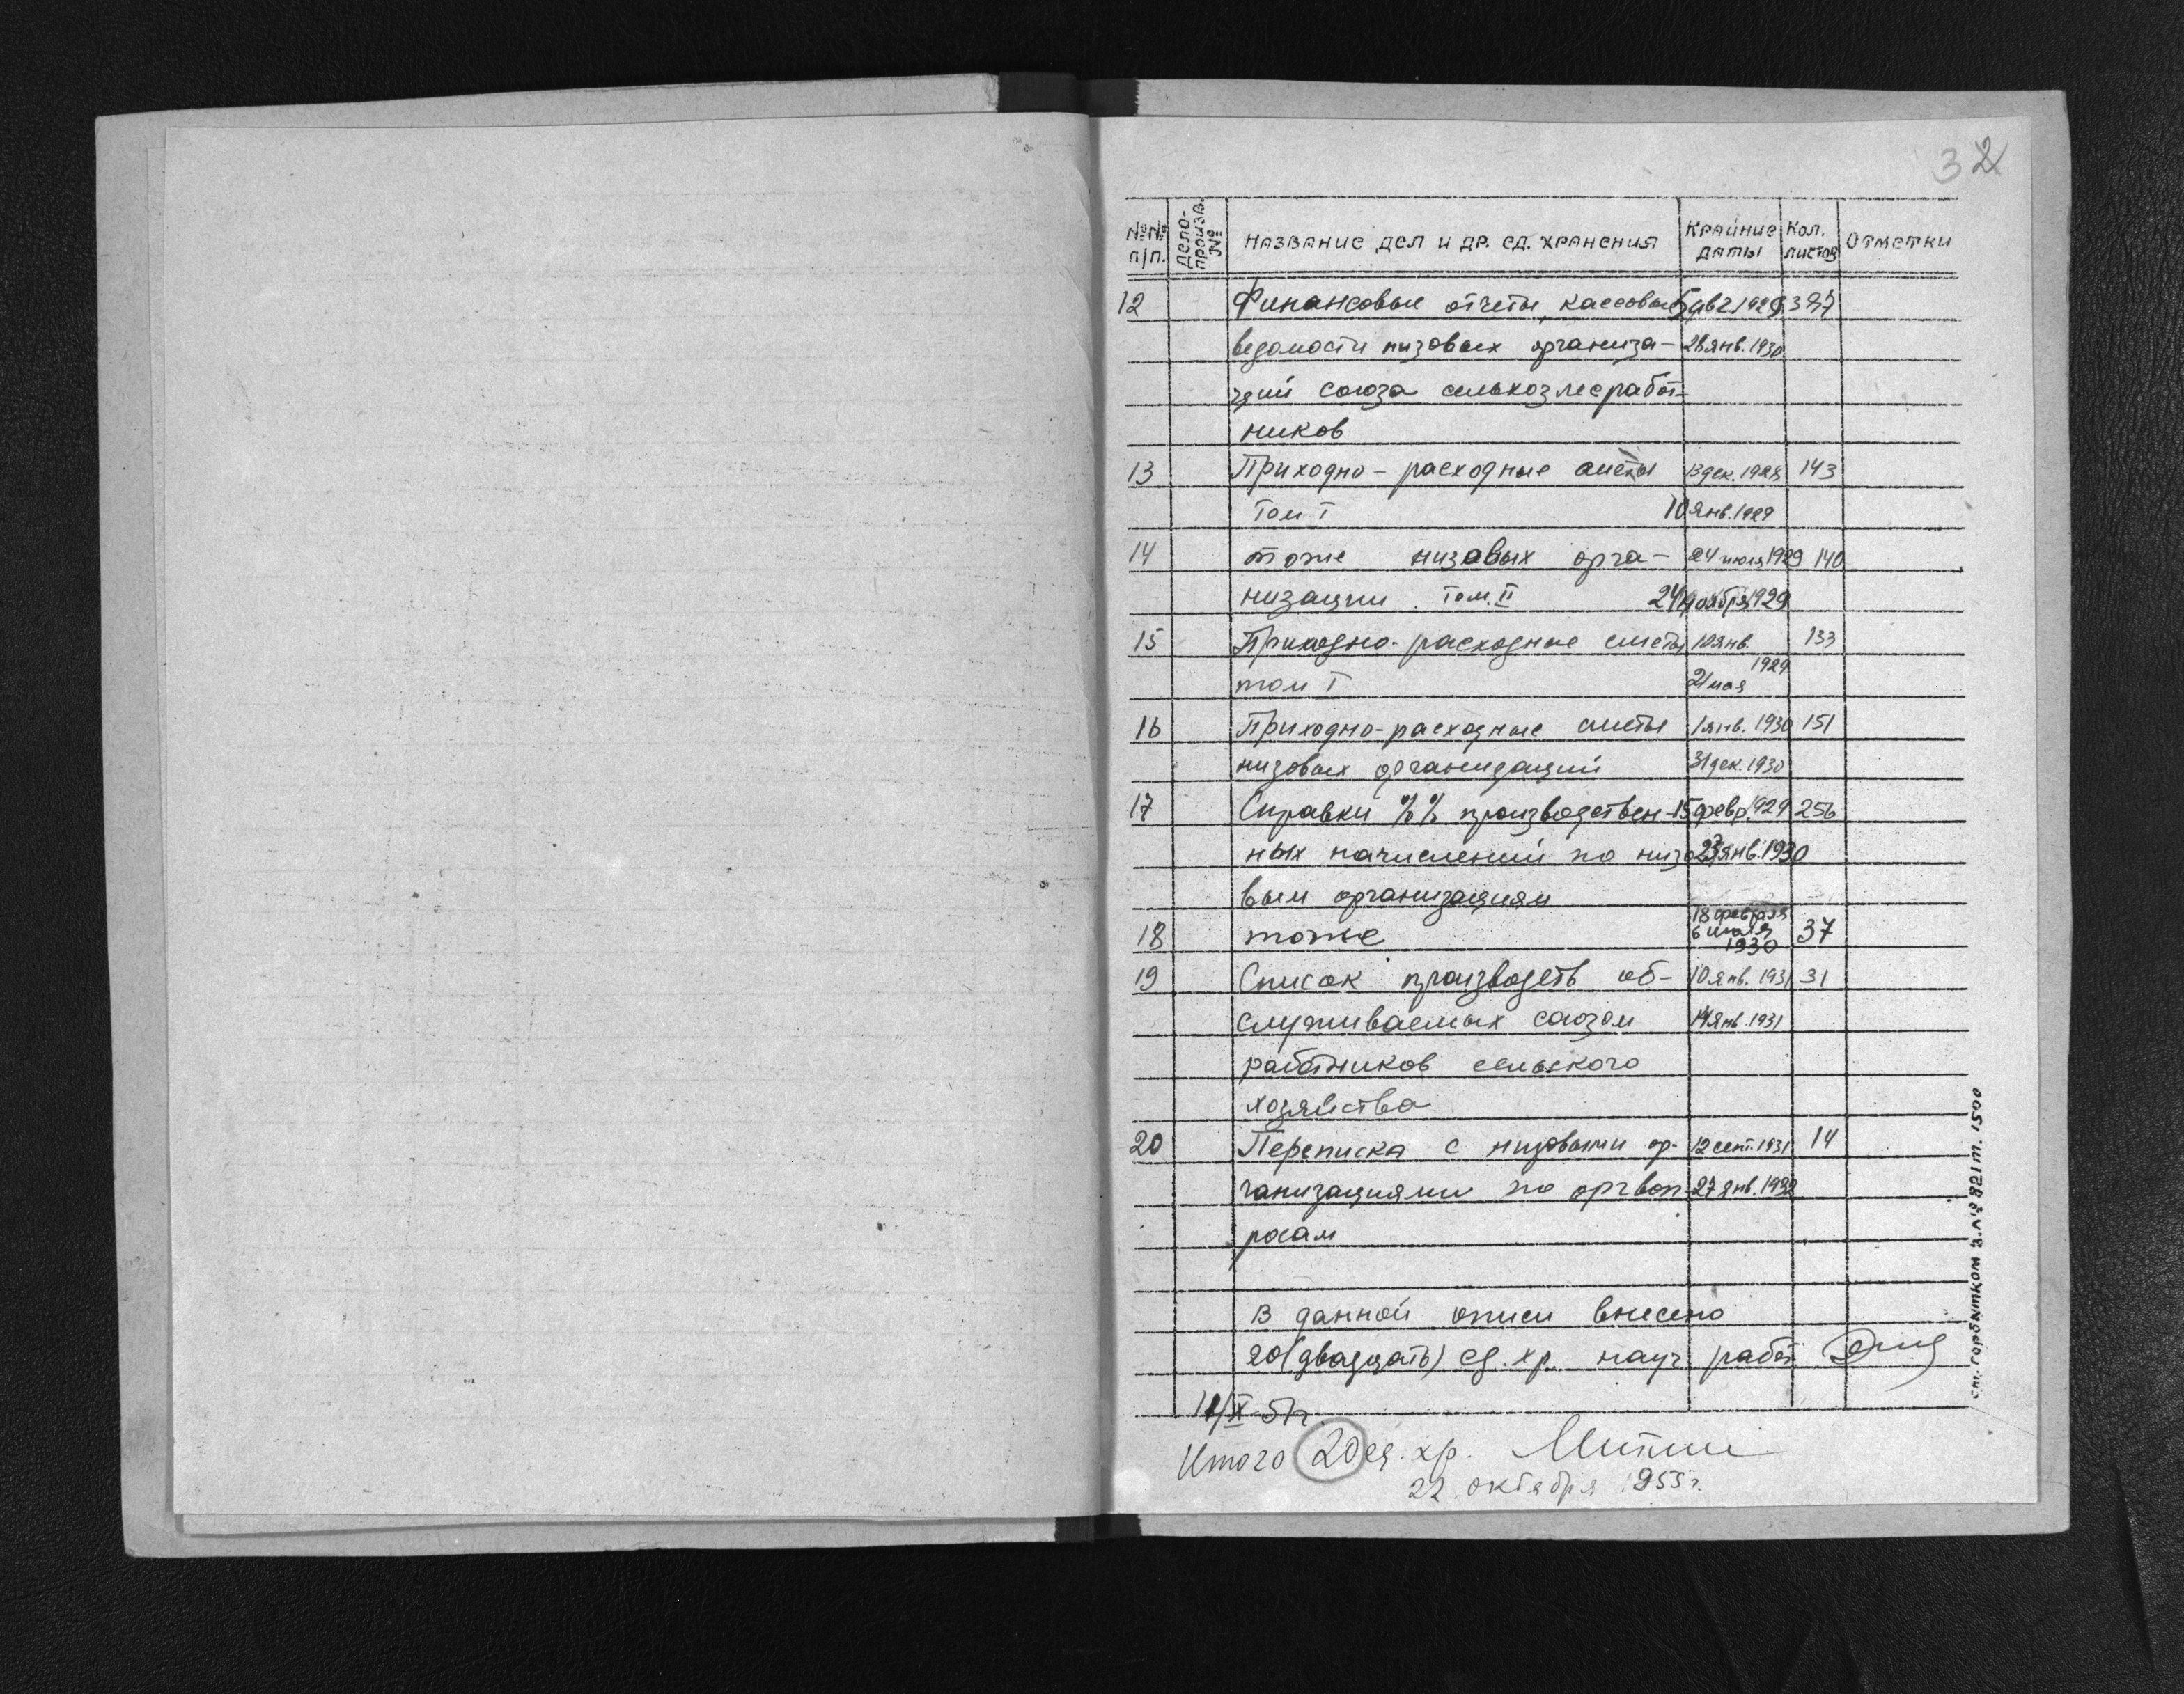 3 2
№№ п/п. Дело-произв. № Название дел и др. ед. хранения Крайние даты Кол. листов Отметки
12 Финансовые отчеты, кассовые 5 авг 1929 397
ведомости низовых организа- 28 янв. 1930
ций союза сельхозлесработ-
ников
13 Приходно-расходные сметы 13 дек. 1928 143
Том I 10 янв. 1929
14 тоже низовых орга- 24 июля 1929 140
низации Том. II 24 ноября 1929
15 Приходно-расходные сметы 10 янв. 133
том I 21 мая 1929
16 Приходно-расходные сметы 1 янв. 1930 151
низовых организаций 31 дек. 1930
17 Справки %% производствен- 15 февр. 1929 256
ных начислений по низо- 23 янв. 1930
вым организациям
18 тоже 18 февраля 37
6 июля
1930
19 Список производств об- 10 янв. 1931 31
служиваемых союзом 14 янв. 1931
работников сельского
хозяйства
20 Переписка с низовыми ор- 12 сент. 1931 14
ганизациями по оргвоп- 27 янв. 1932
росам
В данной описи внесено
20 (двадцать) ед. хр. науч работ.
/IX-51 г.
Итого 20 ед. хр. Митин
22 октября 1955 г.
ст. горбытком з. № 821 т. 1500